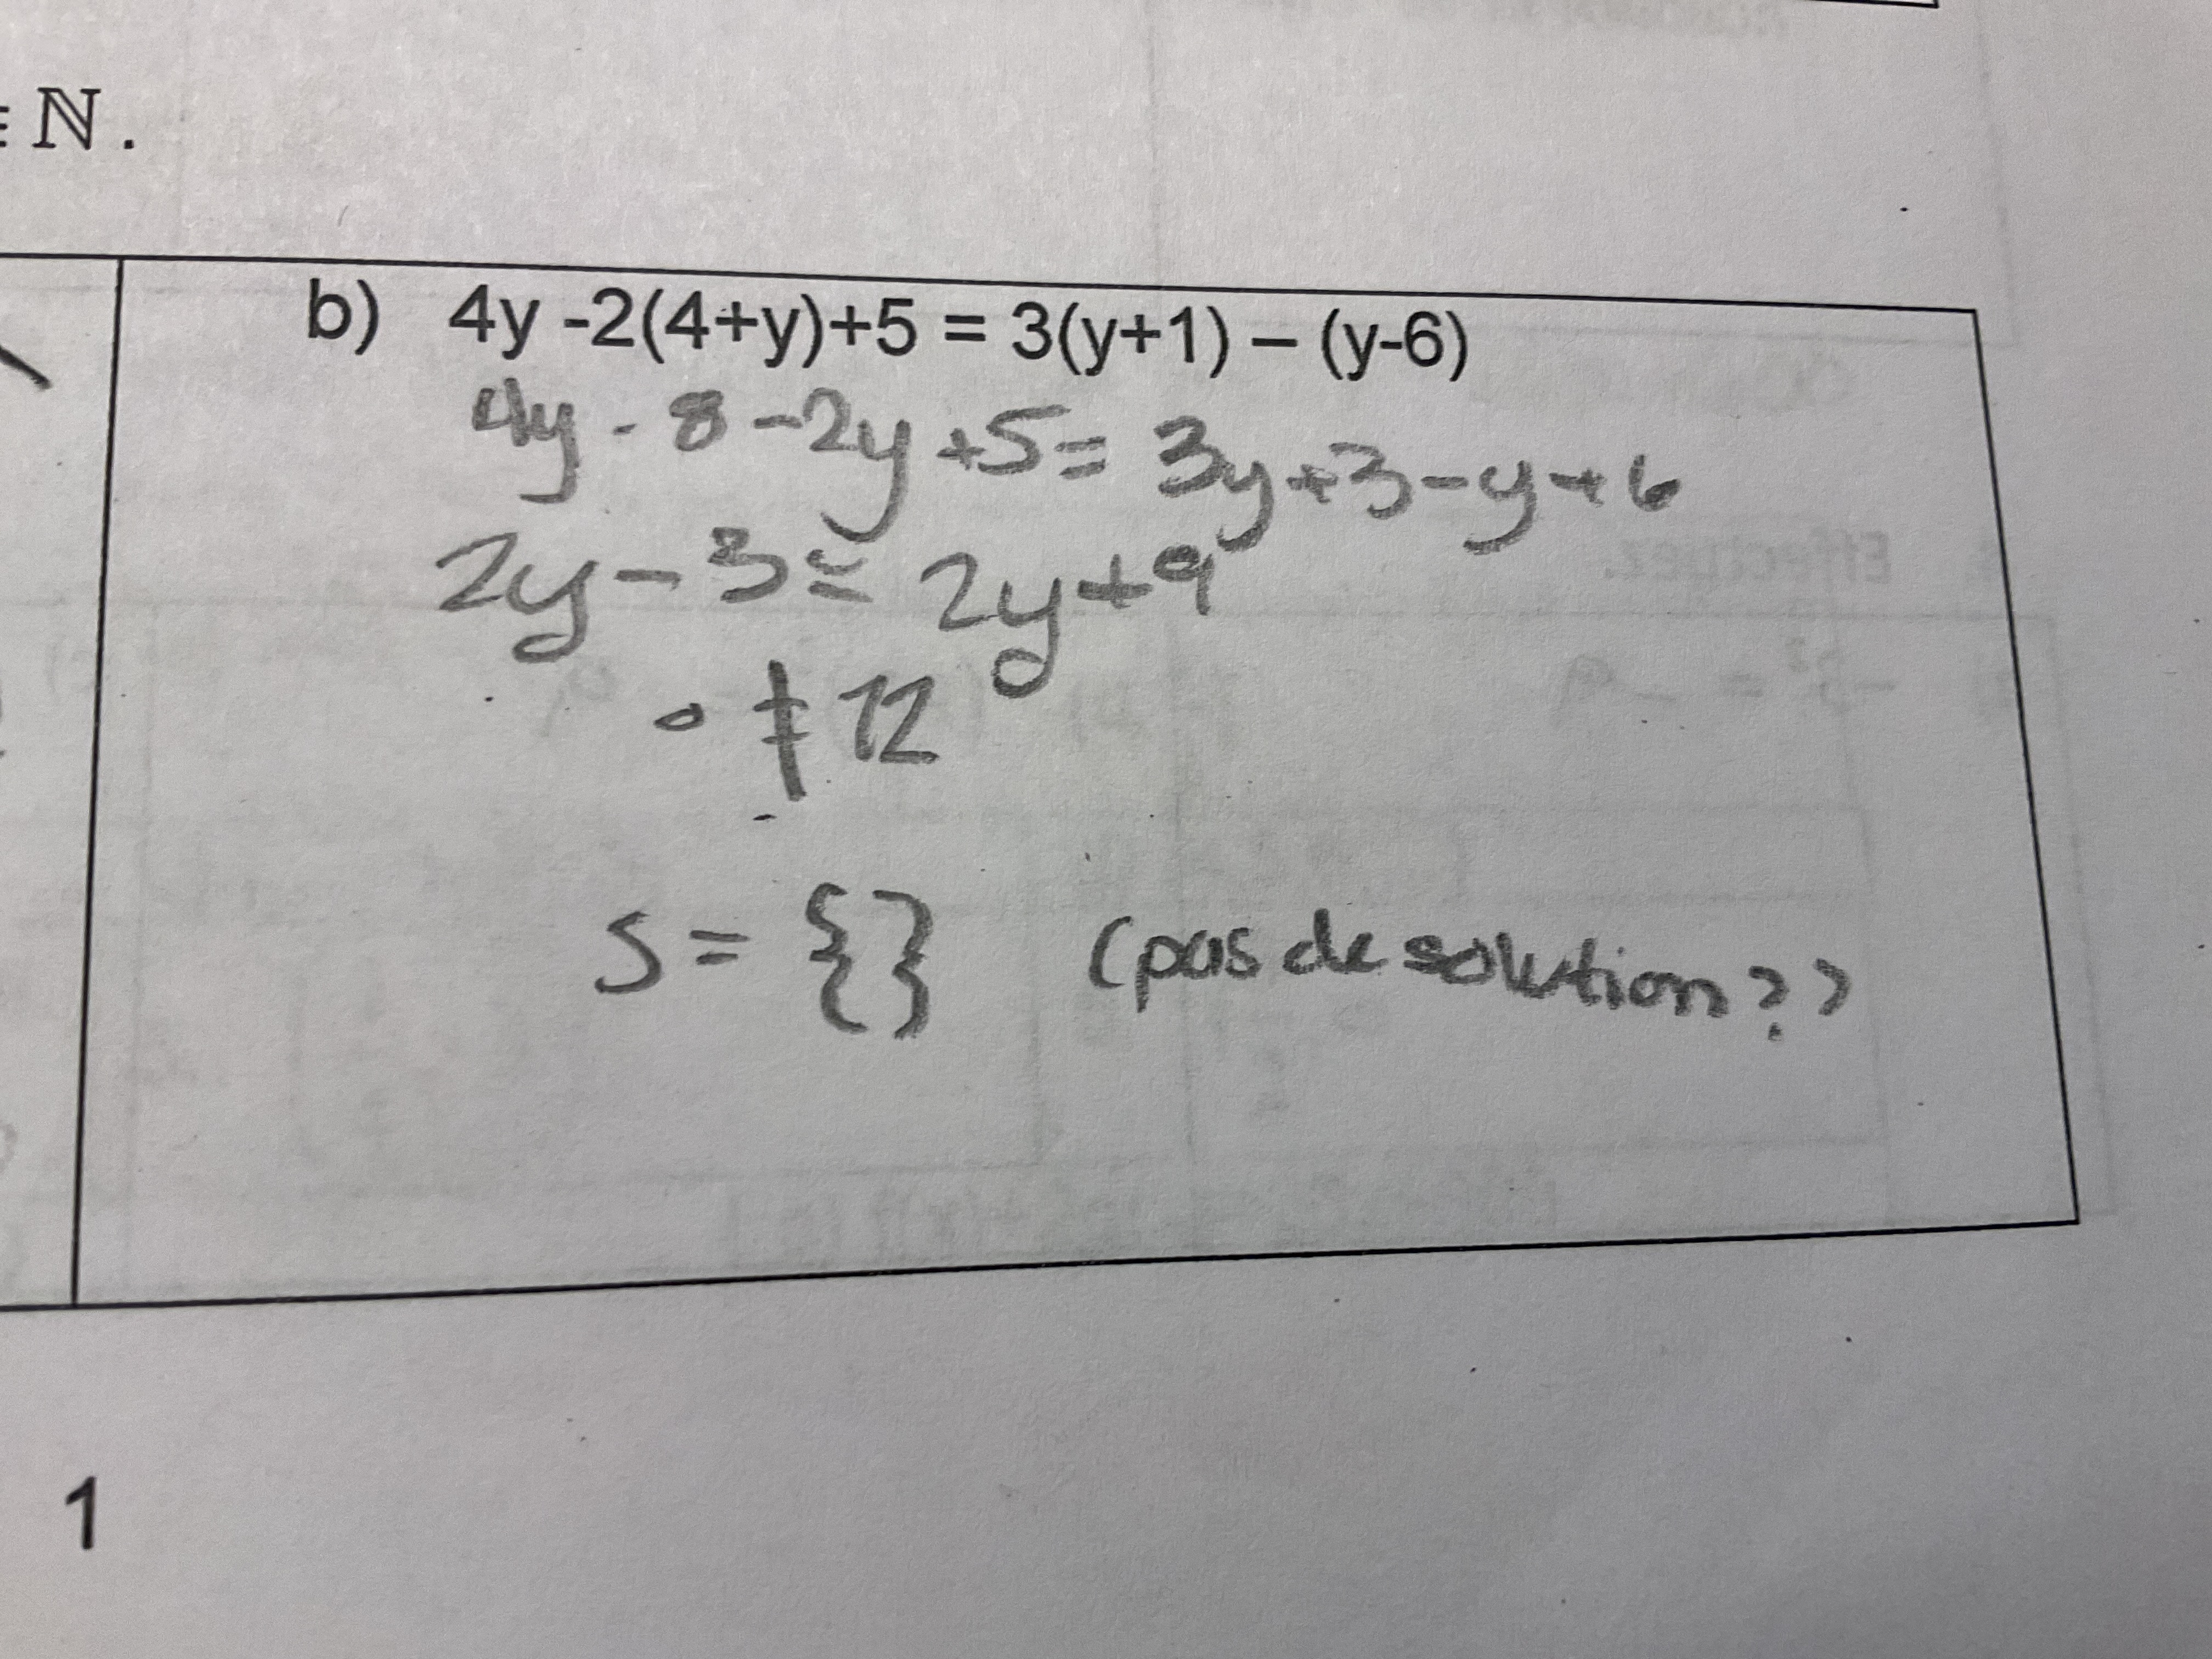 ∈ ℕ.
b) 4y -2(4+y)+5 = 3(y+1) – (y-6)
4y - 8 -2y +5 = 3y+3-y+6
2y - 3 = 2y+9
0 ≠ 12
S = {} (pas de solution??
1